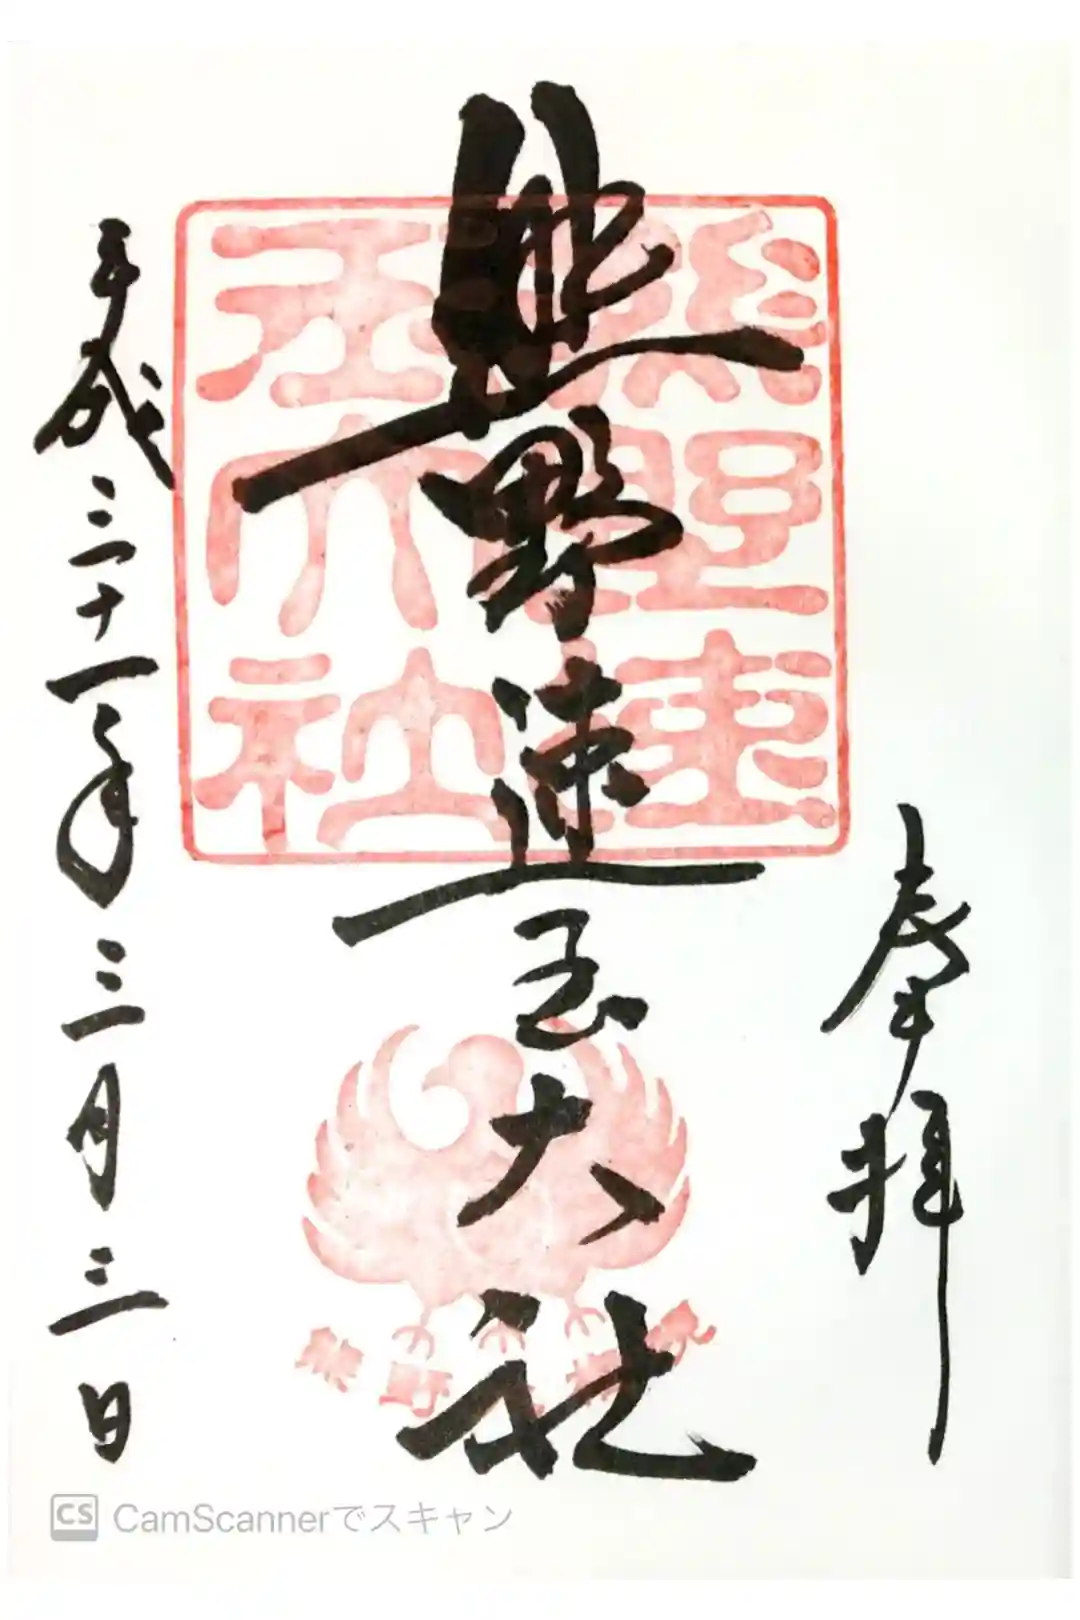 奉拝
熊野速玉大社
平成三十一年三月三日
熊野速玉大社
CS CamScannerでスキャン